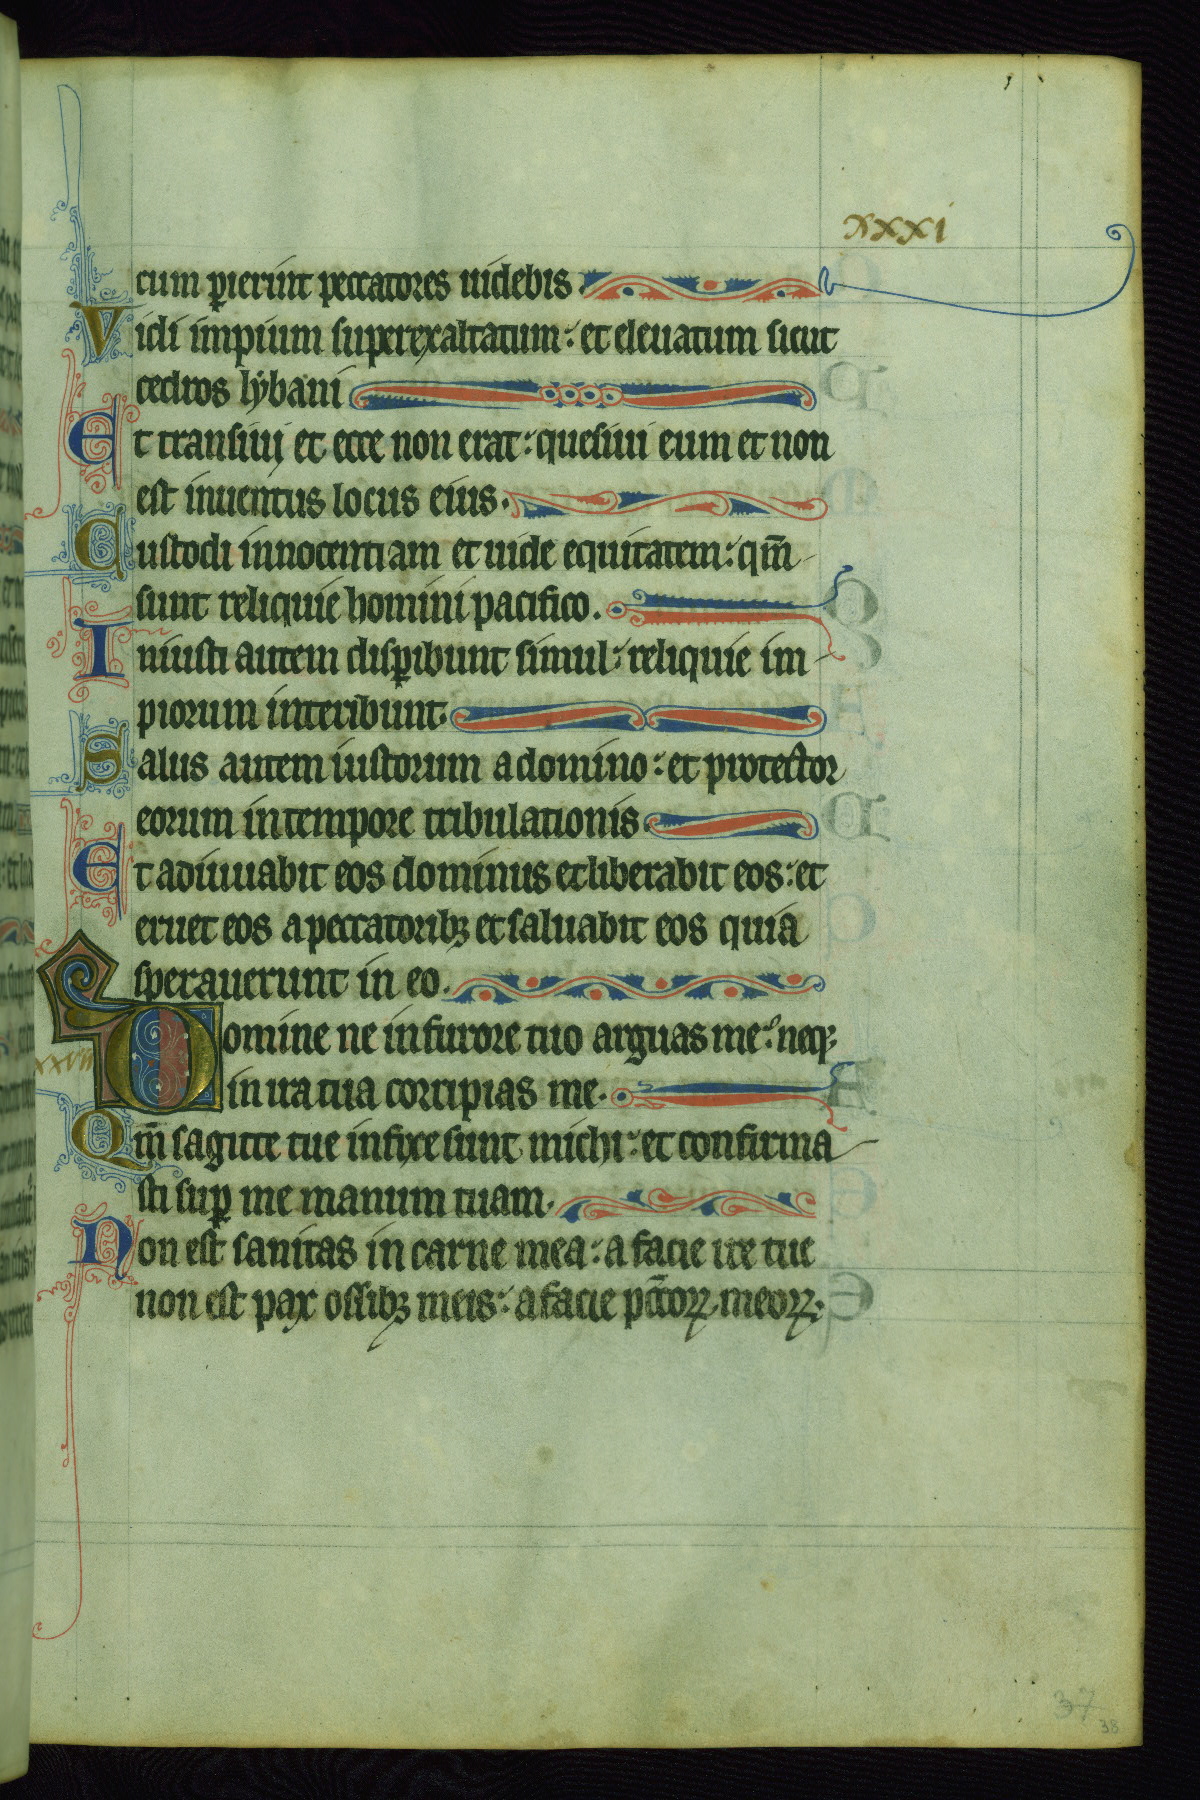 xxxi
cum p̲ierint peccatores uidebis.
Vidi impium superexaltatum: et eleuatum sicut
cedros lẏbani
Et transiuj et ecce non erat: quesiui eum et non
est inuentus locus eius.
Custodi innocentiam et uide equitatem: qm̄
sunt reliquie homini pacifico.
Iniusti autem disp̲ibunt simul: reliquie im
piorum interibunt.
Salus autem iustorum a domino: et protector
eorum in tempore tribulationis.
Et adiuuabit eos dominus et liberabit eos: et
eruet eos a peccatoribꝫ et saluabit eos quia
sperauerunt in eo.
Domine ne in furore tuo arguas me: neqꝫ
xxxvii
in ira tua corripias me.
Qm̄ sagitte tue infixe sunt michi: et confirma
sti sup̲ me manum tuam.
Non est sanitas in carne mea: a facie ire tue
non est pax ossibꝫ meis: a facie pc̄coꝝ meoꝝ.
37
38